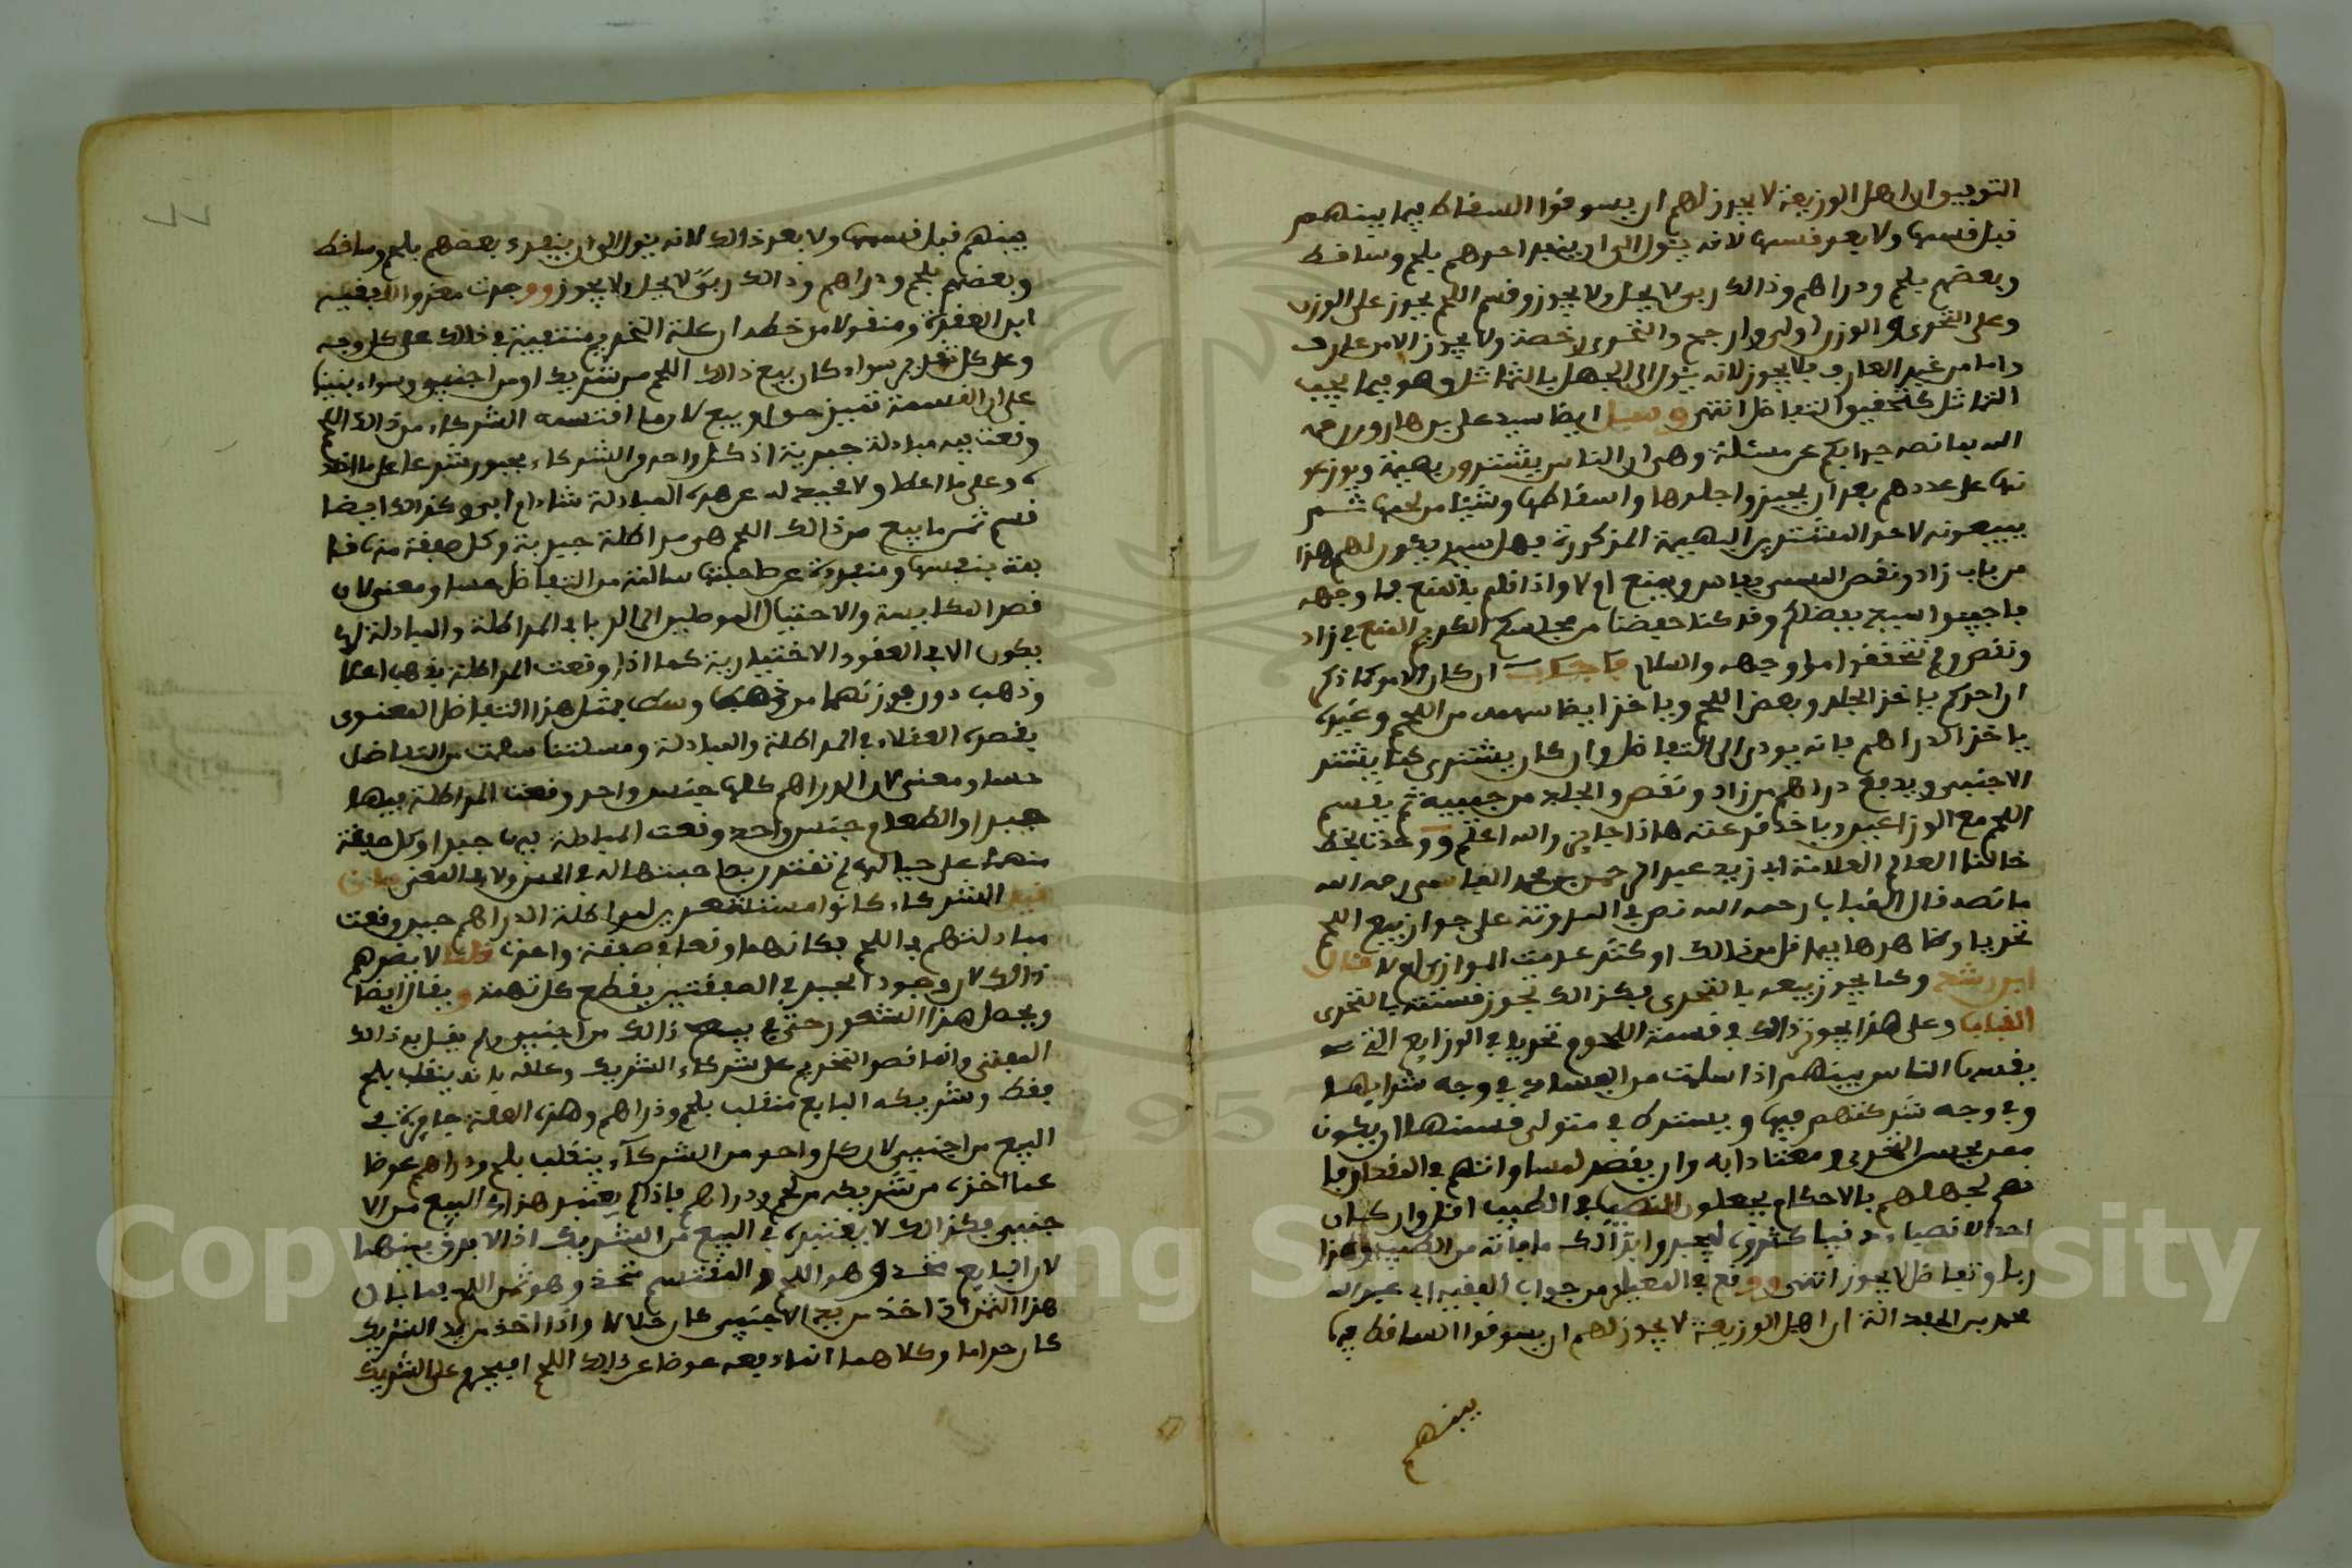 التوفيق ان اهل الوزيعة لا يجوز لهم ان يسوقوا السقاط فيما بينهم
قبل قسمها ولا بعد قسمها لانه يئول الى ان ينفرد احدهم بلحم وساقط
وبعضهم بلحم ودراهم وذالك ربى لا يحل ولا يجوز وقسم اللحم يجوز على الوزن
وعلى التحرى والوزن اولى وارجح والتحرى رخصة ولا يجوز الا من عارف
واما من غير العارف فلا يجوز لانه يئول الى الجهل بالتماثل وهو فيما يجب
التماثل كتحقيق التفاضل انتهى وسئل ايضا سيد على بن هارون رحمه
الله بما نصه جوابكم عن مسئلة وهى ان الناس يشترون بهيمة ويوزعو
نها على عددهم بعد ان يعيزوا جلدها واسقاطها وشيئا من لحمها ثم
يبيعونه لاحد المشترين البهيمة المذكورة فهل سيدى يكون لهم هذا
من باب زاد ونقص اليسير ويمنع ام لا واذا قلتم بالمنع فما وجهه
فاجيبوا سيدى بفضلكم وقد كنا حفظنا من مجلسكم الكريم المنع فى زاد
ونقص ولم نتحقق اما وجهه والسلام فاجاب ان كان الامر كما ذكر
ان احدكم ياخذ الجلد وبعض اللحم وياخذ ايضا سهمه من اللحم وغيره
ياخذ الدراهم فانه يودى الى التفاضل وان كان يشترى كما يشتر
الاجنبى ويدفع دراهم من زاد ونقص والجلد من جيبه ثم يقسم
اللحم مع الوزاعين وياخذ قرعته هاذا جايز والله اعلم ووجدت بخط
خالنا العالم العلامة ابى زيد عبد الرحمن بن محمد الفاسى رحمه الله
ما نصه قال القباب رحمه الله نص فى المدونة على جواز بيع اللحم
تحريا وظاهرها فيما قل من ذالك او كثر عدمت الموازين ام لا قال
ابن رشد وكما يجوز بيعه بالتحرى فكذالك تجوز قسمته بالتحرى
القباب وعلى هذا يجوز ذالك فى قسمة اللحوم تحريا فى الوزايع التى
يقسمها الناس بينهم اذا سلمت من الفساد فى وجه شرايها
وفى وجه شركتهم فيها ويشترط فى متولى قسمتها ان يكون
ممن يحسن التحرى معتادا به وان يقصد لمساواتهم فى المقدار فا
نهم لجهلهم بالاحكام يجعلون النصيب فى الطيب اقل وان كان
احد الانصباء دنيا كثروه ليجبروا بذالك ما فاته من الطيب وهذا
ربا وتفاضل لا يجوز انتهى ووقع فى المعيار من جواب الفقيه ابى عبد الله
محمد بن الحفار ان اهل الوزيعة لا يجوز لهم ان يسوقوا الساقط فيما
بينهم
بينهم قبل قسمها ولا بعد ذالك لانه يئول الى ان ينفرد بعضهم بلحم وساقط
وبعضهم بلحم ودراهم وذالك ربى لا يحل ولا يجوز ووجدت معزوا للفقيه
ابن العقدة ومنقولا من خطه ان علة التحريم منتفية فى ذالك على كل وجه
وعلى كل تقدير سواء كان بيع ذالك اللحم من شريك او من اجنبى وسواء بنينا
على ان القسمة تمييز حق او بيع لان ما اقتسمه الشركاء من ذالك اللحم
وقعت فيه مبادلة جبرية اذ كل واحد والشركاء مجبور شرعا على ما اخذ
ه وعلى ما اعطا ولا محيد له عن هذه المبادلة شاء ام ابى وكذالك ايضا
قسم ثمن ما بيع من ذالك اللحم هى مراطلة جبرية وكل صفقة منها قا
يمة بنفسها ومنفردة عن صاحبتها سالمة من التفاضل حسا ومعنى لان
قصد المكايسة والاحتيال الموصلين الى الربا فى المراطلة والمبادلة انما
يكون الا فى العقود الاختيارية كما اذا وقعت المراطلة بذهب اعلا
وذهب دون بوزنهما من ذهب وسط بمثل هذا التفاضل المعنوى
يقصده العقلاء فى المراطلة والمبادلة ومسئلتنا سلمت من التفاضل
حسا ومعنى لان الدراهم كلها جنس واحد وقعت المراطلة فيها
جبرا والطعام جنس واحد وقعت المبادلة فيه جبرا وكل صفقة
منهما على حيالها لم تفتقر بصاحبتها لا فى الحس ولا فى المعنى فان
قيل الشركاء كانوا مستشعرين لمراطلة الدراهم حين وقعت
مبادلتهم فى اللحم فكانهما وقعا فى صفقة واحدة قلنا لا يضرهم
ذالك لان وجود الجبر فى الصفقتين يقطع كل تهمة ويقال ايضا
ويحصل هذا الشعور حتى فى بيع ذالك من اجنبى ولم يقل به ذالك
المفتى وانما قصر التحريم على شركاء الشريك وعلله بانه ينقلب بلحم
فقط وشريكه البايع منقلب بلحم ودراهم وهذه العلة جارية فى
البيع من اجنبى لان كل واحد من الشركاء ينقلب بلحم ودراهم عوضا
عما اخذه من شريكه من لحم ودراهم فاذا لم يعتبر هذا فى البيع من الا
جنبى فكذالك لا يعتبره فى البيع من الشريك اذ لا فرق بينهما
لان البايع متحد وهو اللحم والمقتسم متحد وهو ثمن اللحم فما بال
هذا الثمن اذا اخذ من يد الاجنبى كان حلالا واذا اخذ من يد الشريك
كان حراما وكلاهما انما دفعه عوضا عن ذالك اللحم ايحرم على الشريك